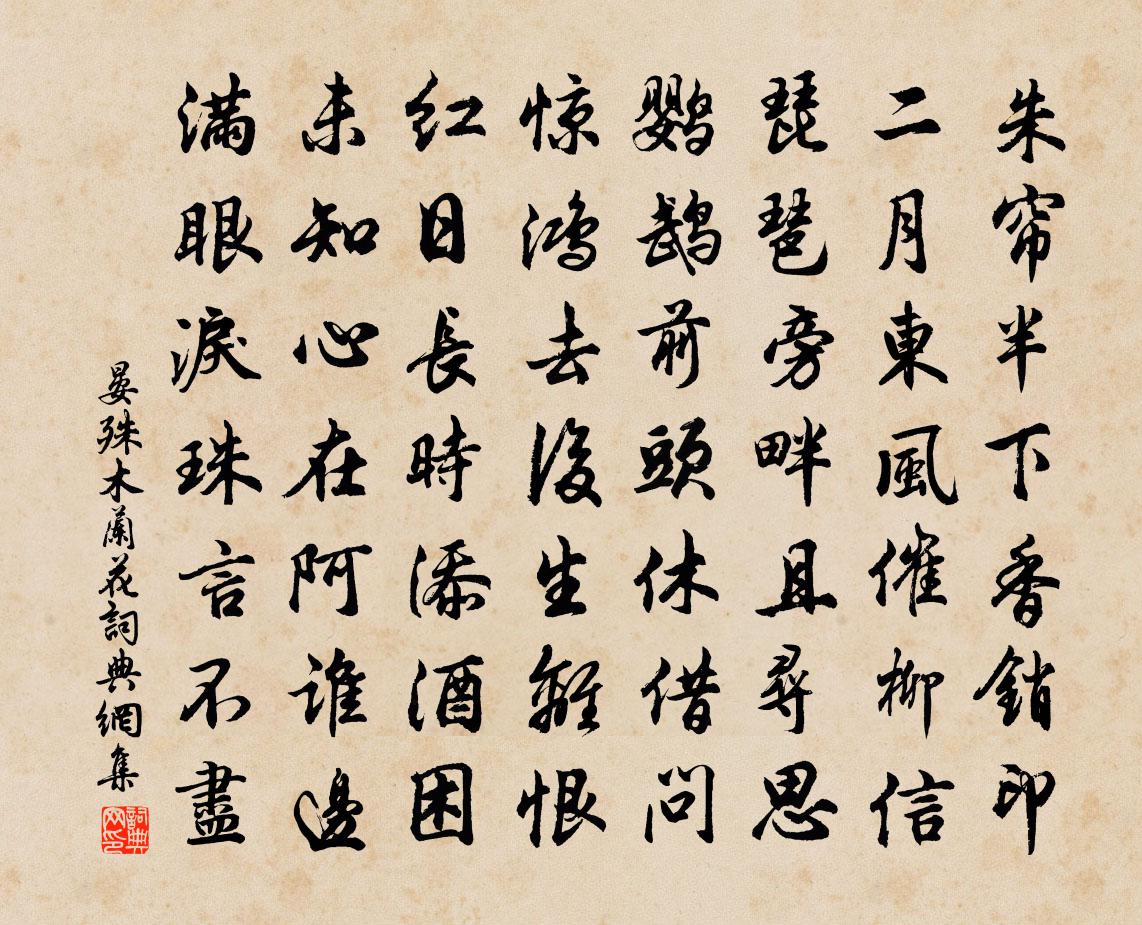 朱帘半下香銷印
二月東風催柳信
琵琶旁畔且尋思
鹦鹉前頭休借問
惊鸿去後生離恨
红日長時添酒困
未知心在阿誰邊
滿眼淚珠言不盡
晏殊木蘭花詞典網集
詞典網印